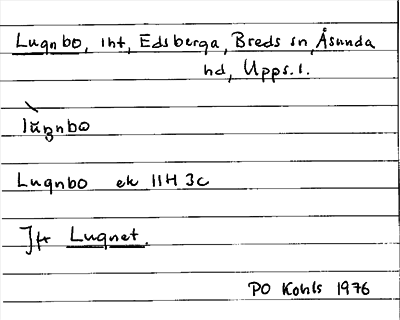 Lugnbo, lht, Edsberga, Breds sn, Åsunda
hd, Upps. l.
Lugnbo ek 11H 3c
Jfr Lugnet.
PO Kohls 1976